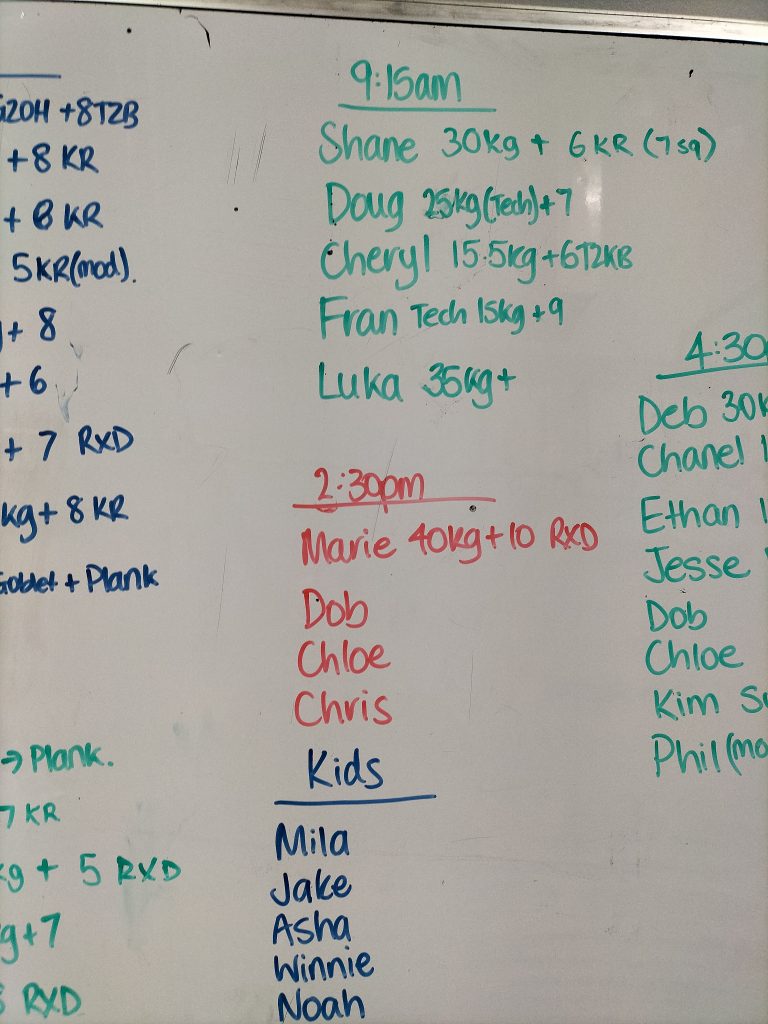 G2OH +8T2B
+8 KR
+ 8 KR
5KR(mod).
+ 8
+6
+ 7 RXD
kg+ 8 KR
Goblet + Plank
→ Plank.
7 KR
kg + 5 RXD
g+7
RXD
9:15am
Shane 30kg + 6 KR (7sq)
Doug 25kg(Tech)+7
Cheryl 15.5kg+6T2KB
Fran Tech 15kg+9
Luka 35kg+
2:30pm
Marie 40kg+10 RXD
Dob
Chloe
Chris
Kids
Mila
Jake
Asha
Winnie
Noah
4:30
Deb 30k
Chanel 1
Ethan 1
Jesse
Dob
Chloe
Kim Su
Phil (mo